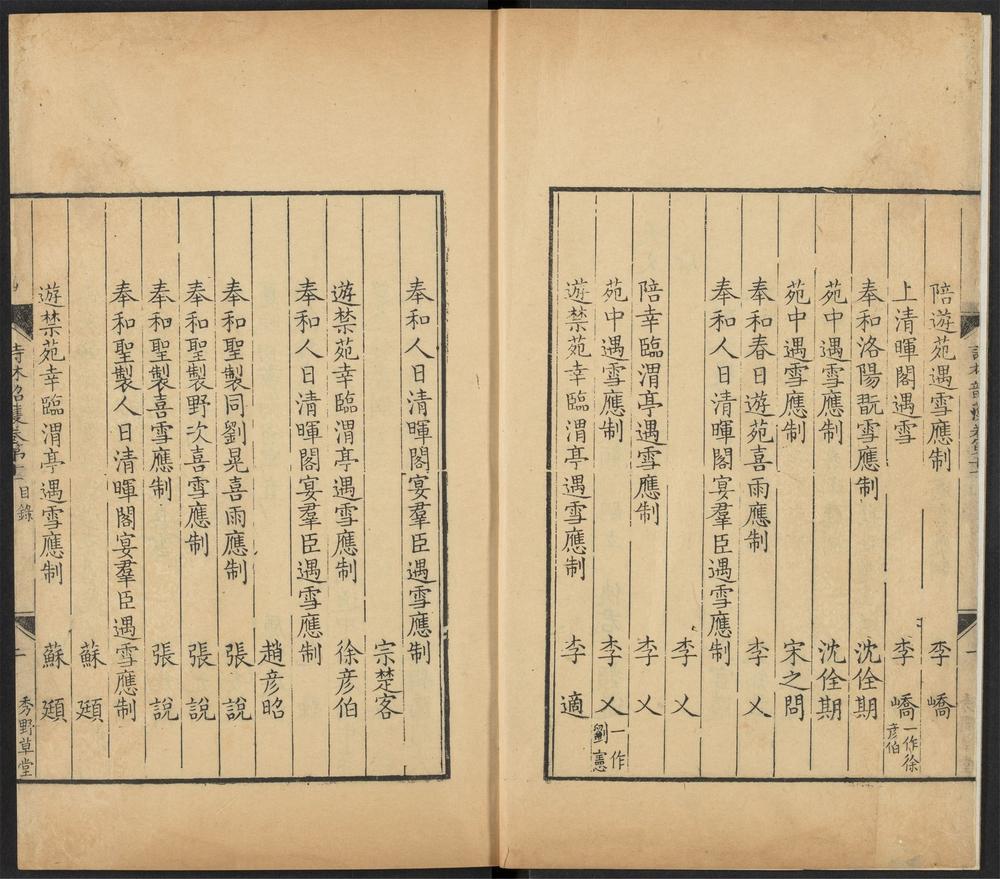 陪遊苑遇雪應制 李嶠
上清暉閣遇雪 李嶠 一作徐彦伯
奉和洛陽翫雪應制 沈佺期
苑中遇雪應制 沈佺期
苑中遇雪應制 宋之問
奉和春日遊苑喜雨應制 李乂
奉和人日清暉閣宴羣臣遇雪應制
李乂
陪幸臨渭亭遇雪應制 李乂
苑中遇雪應制 李乂 一作劉憲
遊禁苑幸臨渭亭遇雪應制 李適
奉和人日清暉閣宴羣臣遇雪應制
宗楚客
遊禁苑幸臨渭亭遇雪應制 徐彦伯
奉和人日清暉閣宴羣臣遇雪應制
趙彦昭
奉和聖製同劉晃喜雨應制 張說
奉和聖製野次喜雪應制 張說
奉和聖製喜雪應制 張說
奉和聖製人日清暉閣宴羣臣遇雪應制
蘇頲
遊禁苑幸臨渭亭遇雪應制 蘇頲
詩林韶濩卷第十 目錄 二 秀野草堂